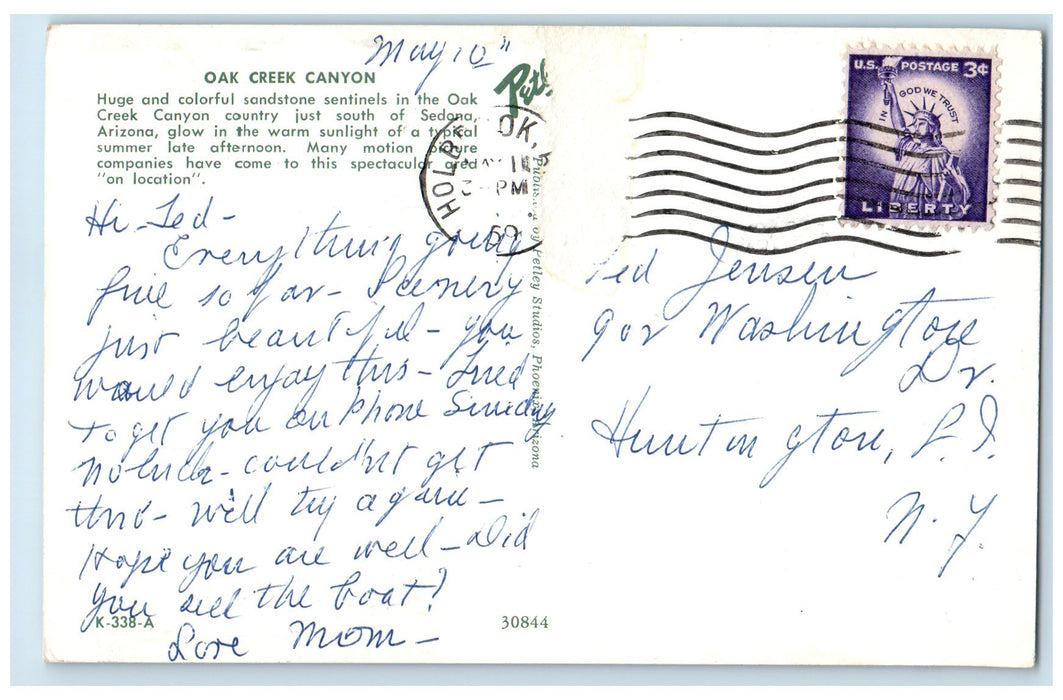 May 10"
OAK CREEK CANYON
Huge and colorful sandstone sentinels in the Oak
Creek Canyon country just south of Sedona,
Arizona, glow in the warm sunlight of a typical
summer late afternoon. Many motion picture
companies have come to this spectacular area
"on location".
Hi Ted -
Everything going
fine so far - Scenery
just beautiful - you
would enjoy this - Tried
to get you on phone Sunday
no luck - couldn't get
thro - will try again -
Hope you are well - Did
you sell the boat?
Love Mom -
K-338-A
30844
Published by Petley Studios, Phoenix, Arizona
HOLB OK,
MAY 11
3 - PM
59
U.S. POSTAGE 3¢
IN GOD WE TRUST
LIBERTY
Ted Jensen
Washington
Dr.
Huntington, L.I.
N.Y.